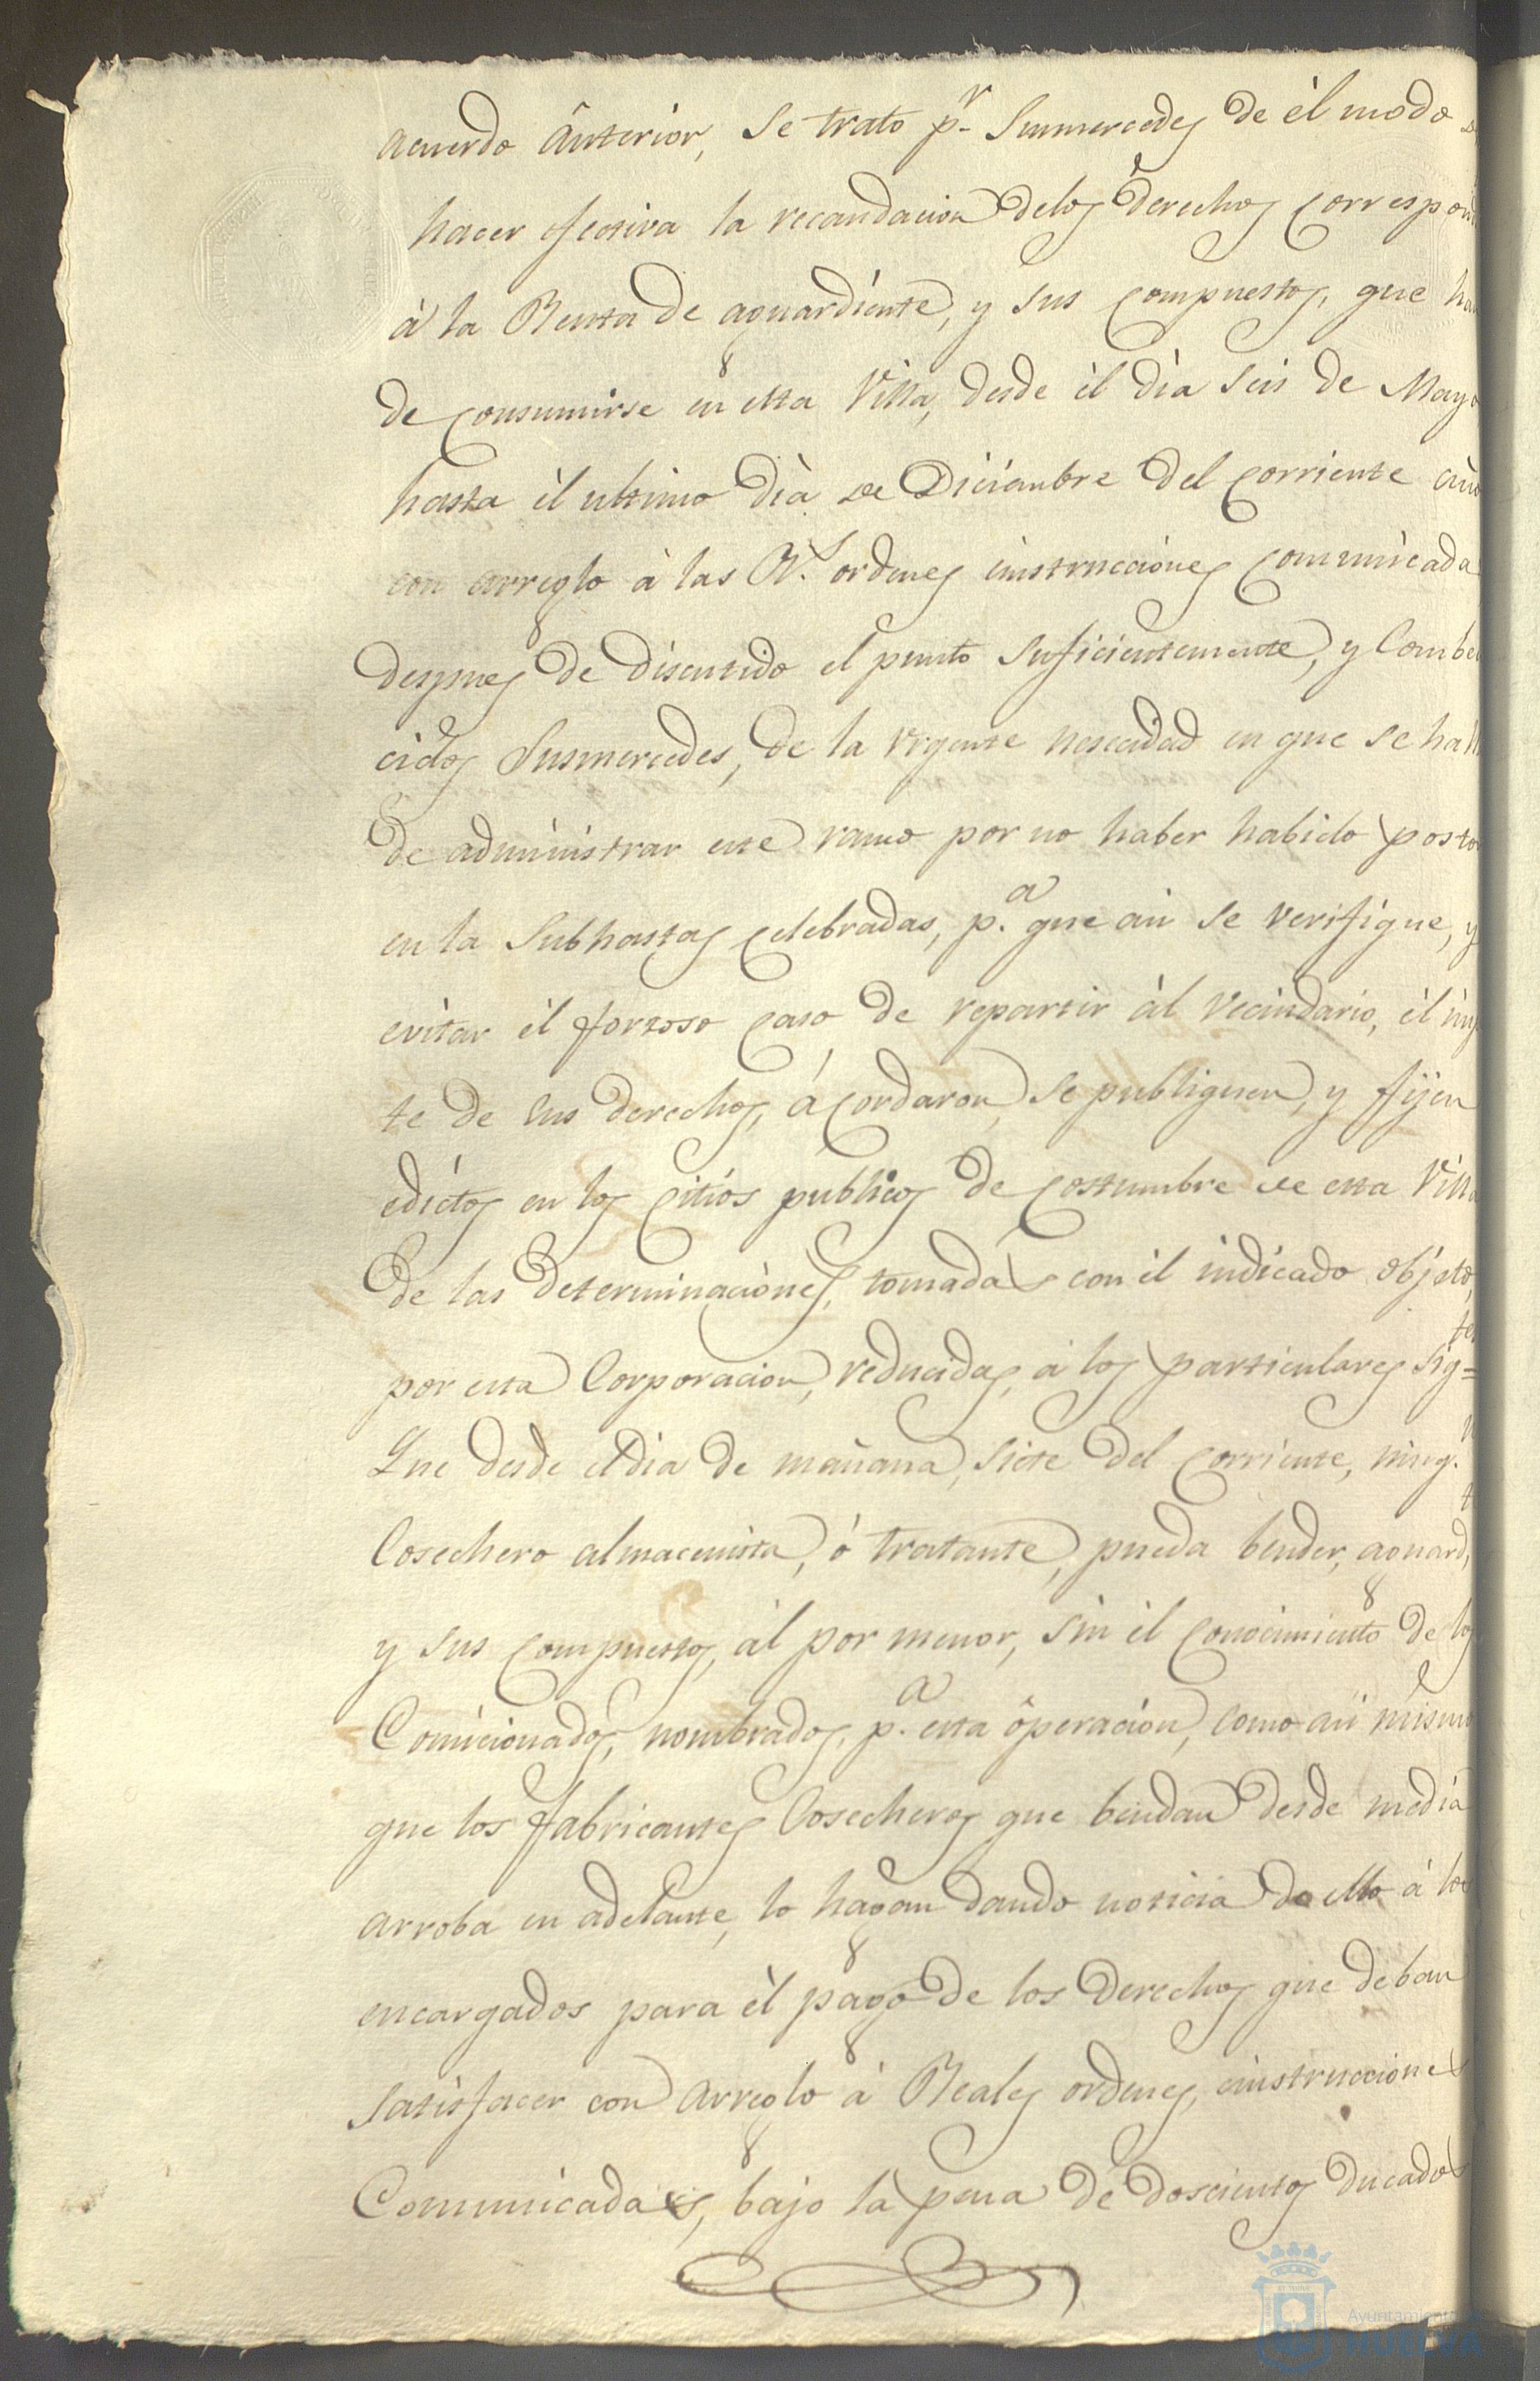 acuerdo ânterior, se trato p.r Susmercedes de él modo
hacer efectiva la recaudacion delos derechos correspon
à la Renta de aguardiente, y sus compuestos, que ha
de consumirse en esta Villa, desde èl dia seis de Mayo
hasta èl ultimo dia de Diciembre del corriente año
con arreglo à las R.s ordenes èinstrucciónes comunicada
despues de discutido el punto suficientemente, y Combe
cidos Susmercedes, de la urgente neseidad en que se hall
de administrar este ramo por no haber habido posto
en la Subhastas celebradas, p.a que asi se verifique, y
evitar èl forsoso caso de repartir àl Vecindario, èl imp
te de sus derechos, ácordaron se publiquen, y fijen
edíctos en los citios publicos de costumbre de esta Villa
de las determinaciònes, tomadas con èl indicado objeto,
por esta Corporacion, reducidas, à los particulares sig.tes=
Que desde eldia de mañana, siete del corriente, ning.n
Cosechero almacenista, ó tratante, pueda bender, aguard.te
y sus compuestos, àl por menor, sin èl conocimiento de los
Comicionados, nombrados, p.a esta ôperación, como asi mismo
que los fabricantes Cosecheros que bendan desde media
arroba en adelante, lo hagan dando noticia de ello à los
encargados para èl pago de los derechos que deban
satisfacer con arreglo à Reales ordenes, èinstrucciones
Comunicadas, bajo la pena de doscientos ducados
Ayuntamiento
HUELVA